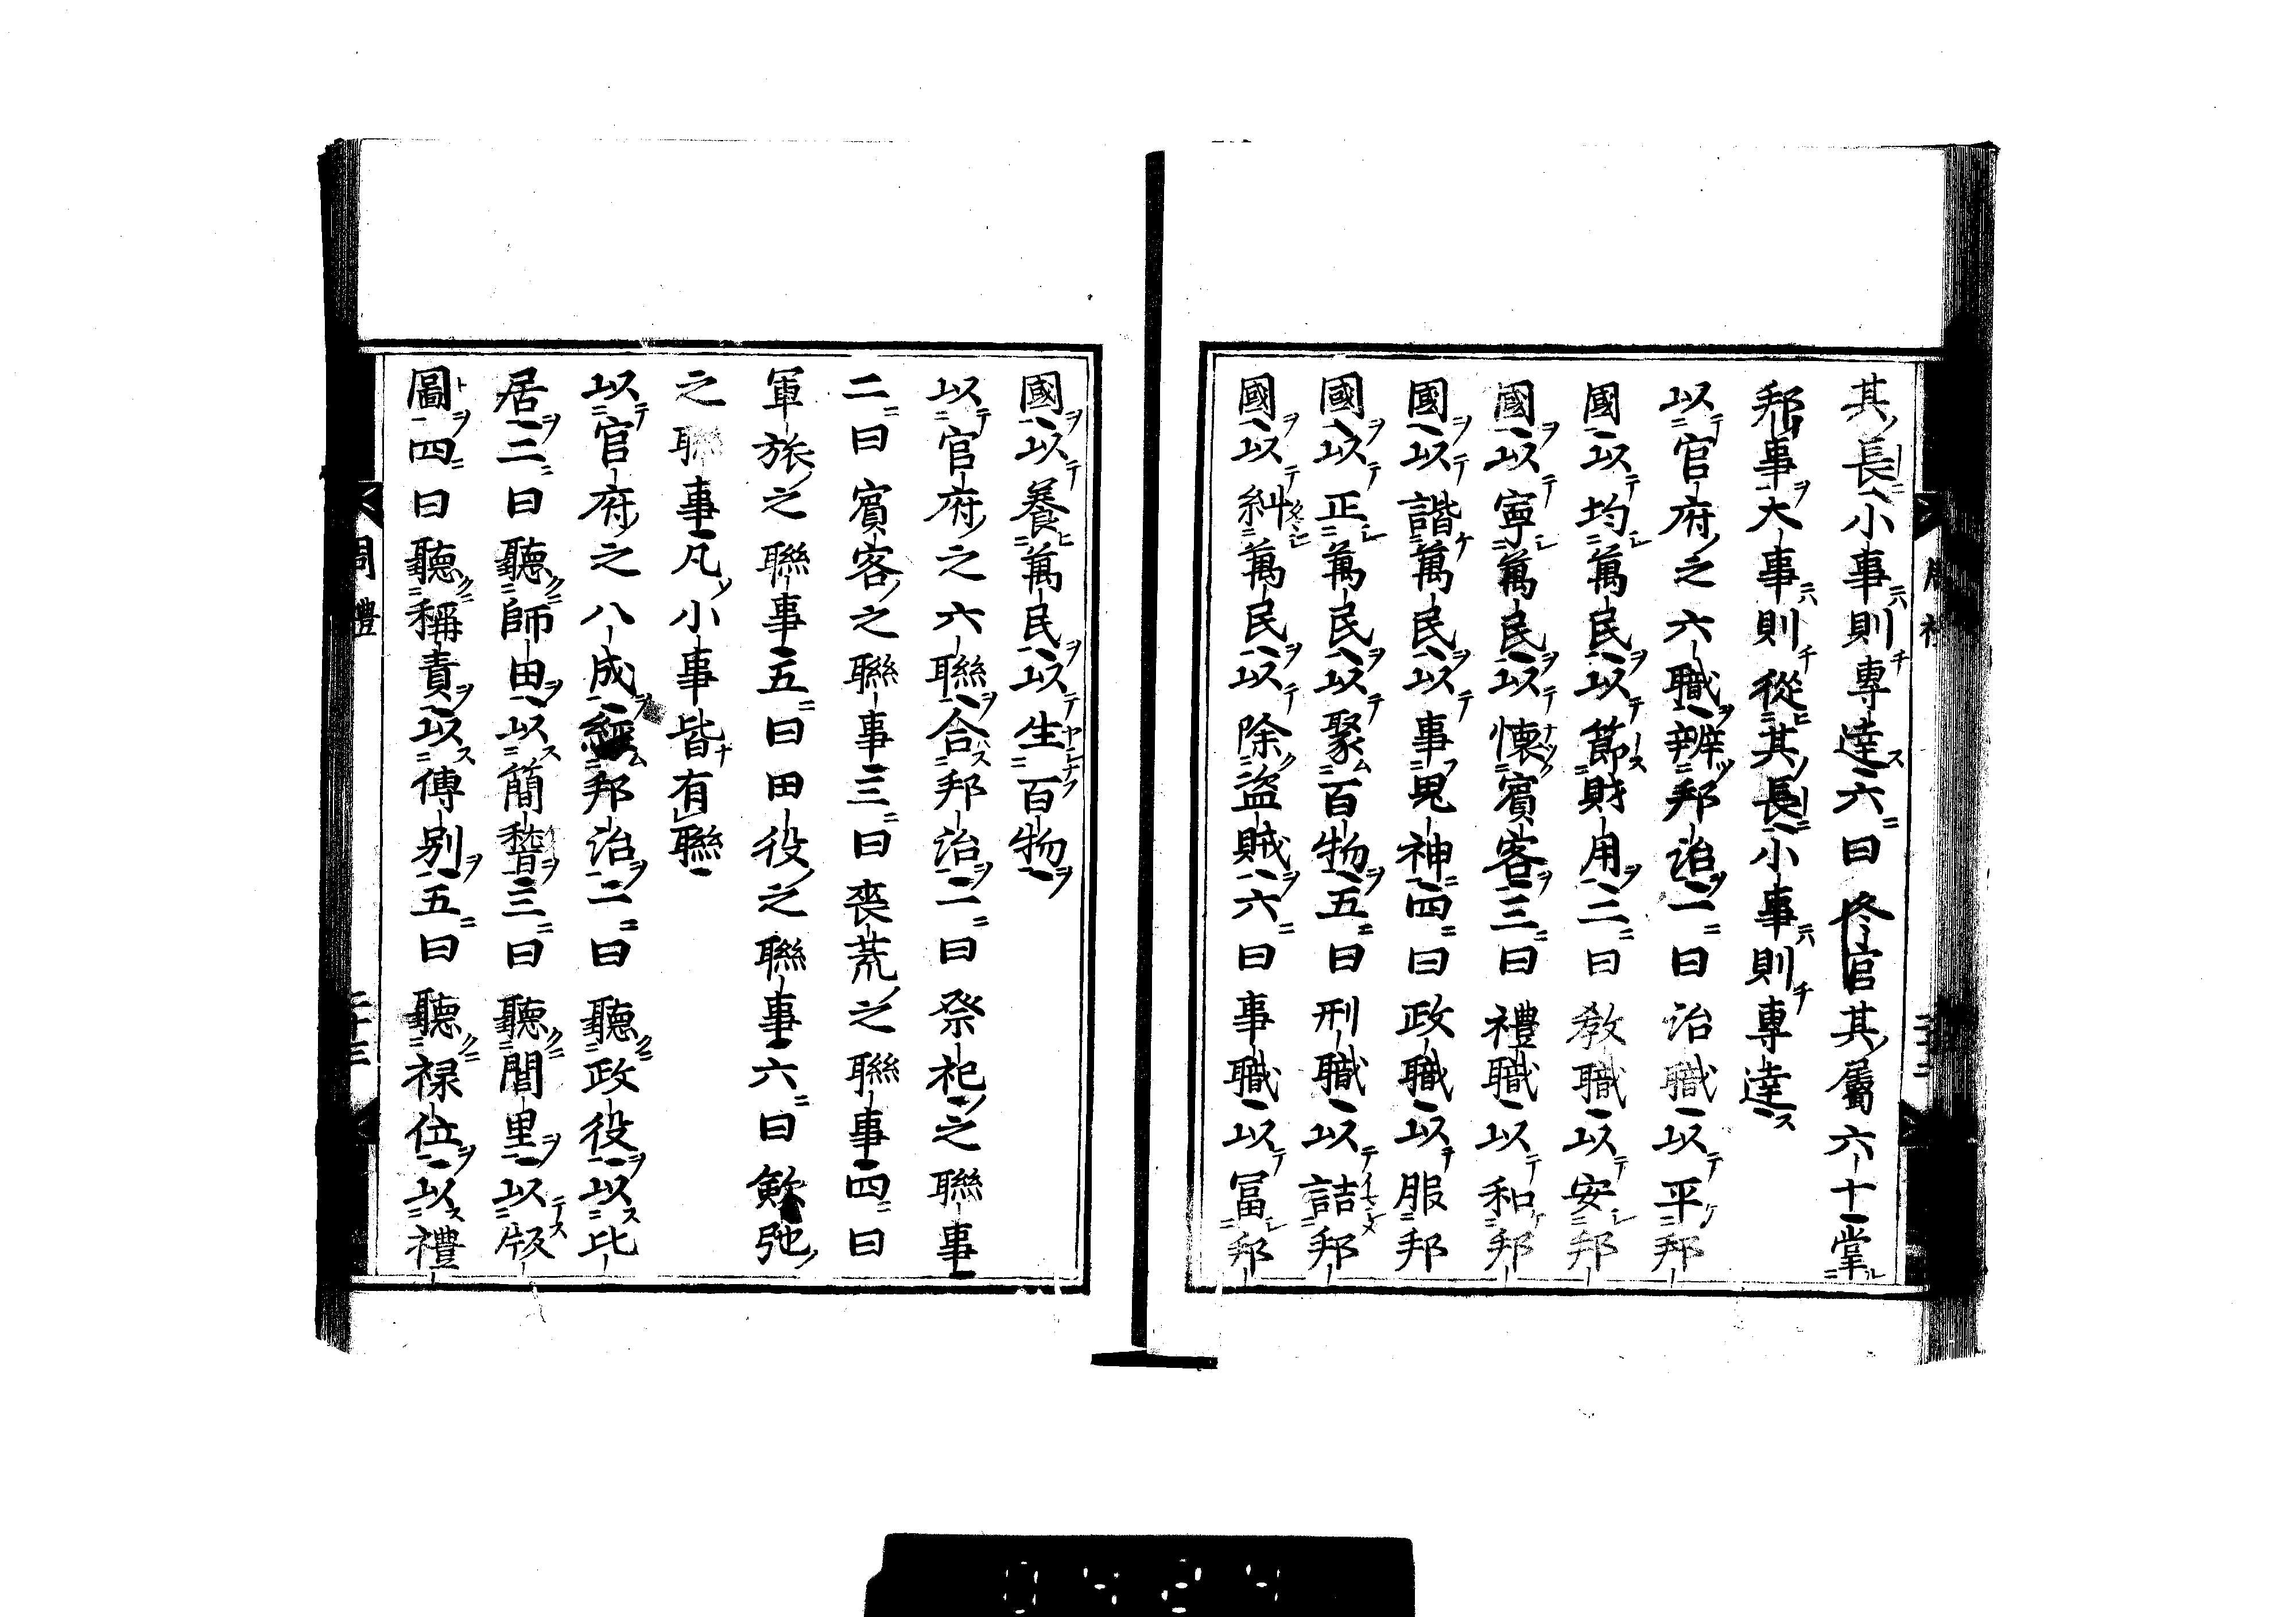 其長小事則專達六曰冬官其屬六十掌
邦事大事則從其長小事則專達
以官府之六職辨邦治一曰治職以平邦
國以均萬民以節財用二曰敎職以安邦
國以寧萬民以懷賓客三曰禮職以和邦
國以諧萬民以事鬼神四曰政職以服邦
國以正萬民以聚百物五曰刑職以詰邦
國以糾萬民以除盜賊六曰事職以富邦
國以養萬民以生百物
以官府之六聯合邦治一曰祭祀之聯事
二曰賓客之聯事三曰喪荒之聯事四曰
軍旅之聯事五曰田役之聯事六曰斂弛
之聯事凡小事皆有聯
以官府之八成經邦治一曰聽政役以比
居二曰聽師田以簡稽三曰聽閭里以版
圖四曰聽稱責以傅別五曰聽祿位以禮
周禮
二十三